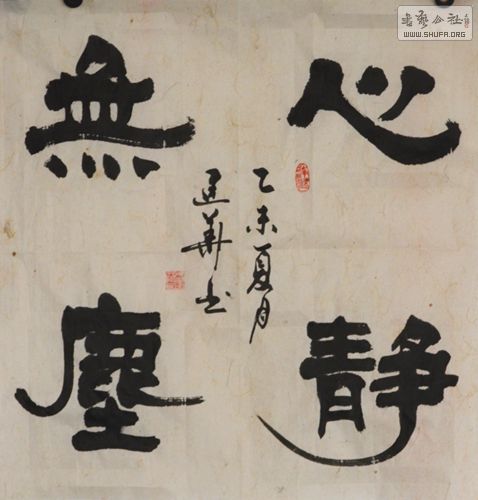 心靜
無塵
乙未夏月
建華书
书艺公社
WWW.SHUFA.ORG